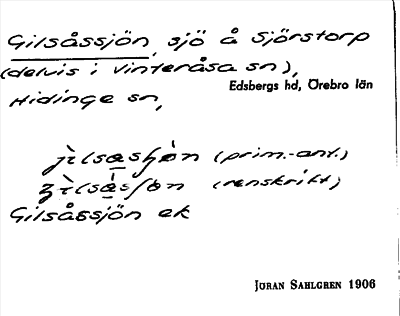 Gilsåssjön, sjö å Sjörstorp
(delvis i Vinteråsa sn),
Edsbergs hd, Örebro län
Hidinge sn,
(prim.-ant.)
(renskrift)
Gilsåssjön ek
JÖRAN SAHLGREN 1906